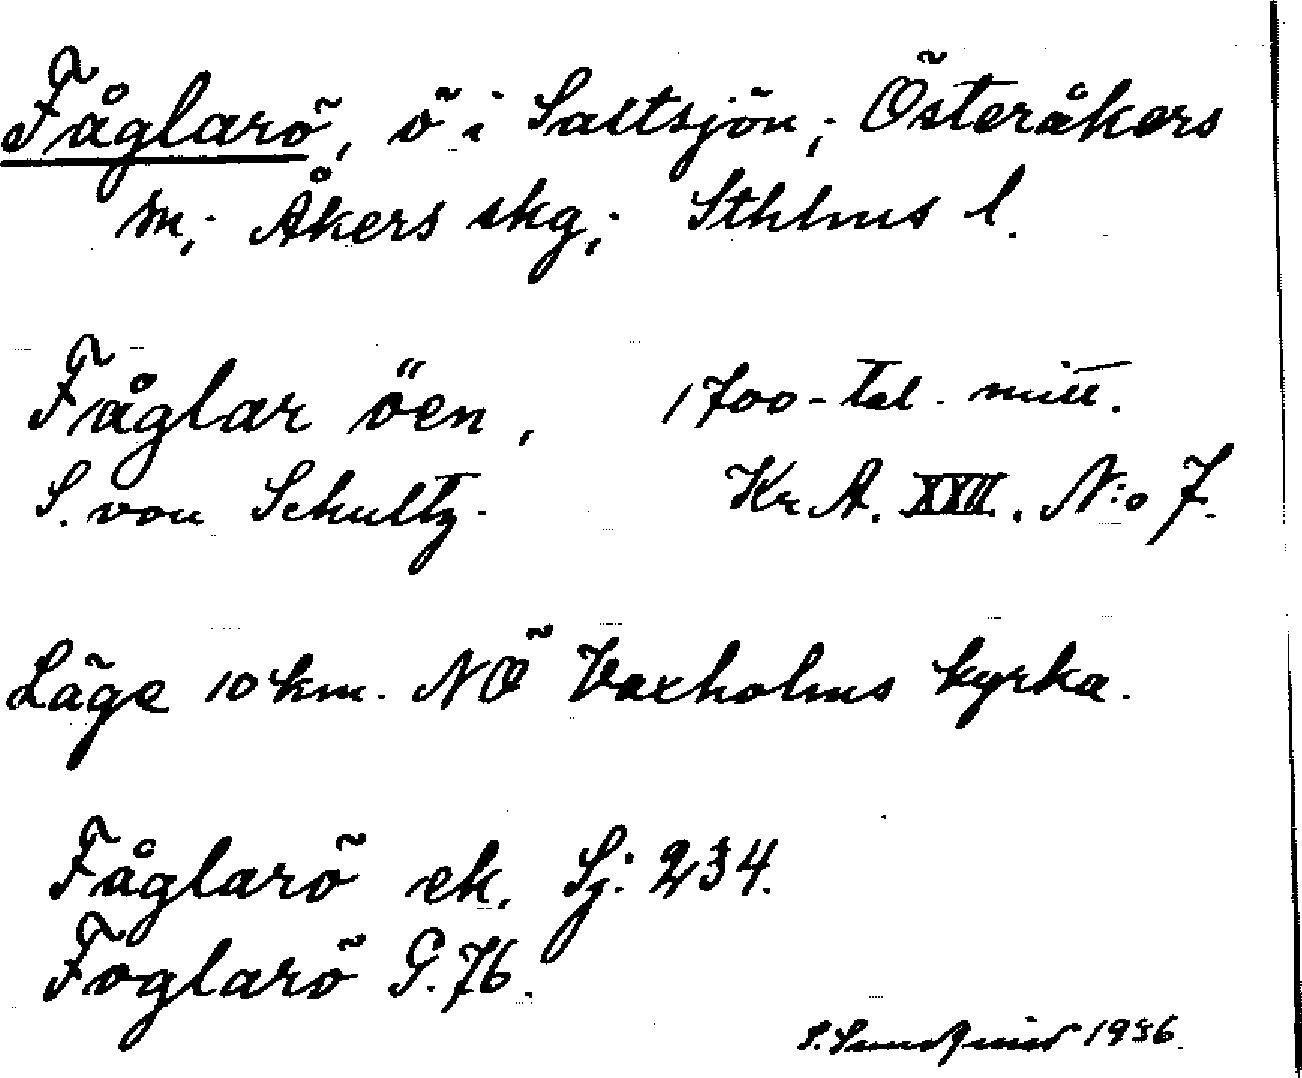 Fåglarö, ö i Saltsjön; Österåkers
sn; Åkers skg; Sthlms l.
Fåglar öen, 1700-tal. mitt.
S. von Schultz. Kr. A. XXII. N:o 7.
Läge 10 km. NÖ Vaxholms kyrka.
Fåglarö ek. Sj: 234.
Foglarö G. 76.
S. Sundqvist 1936.